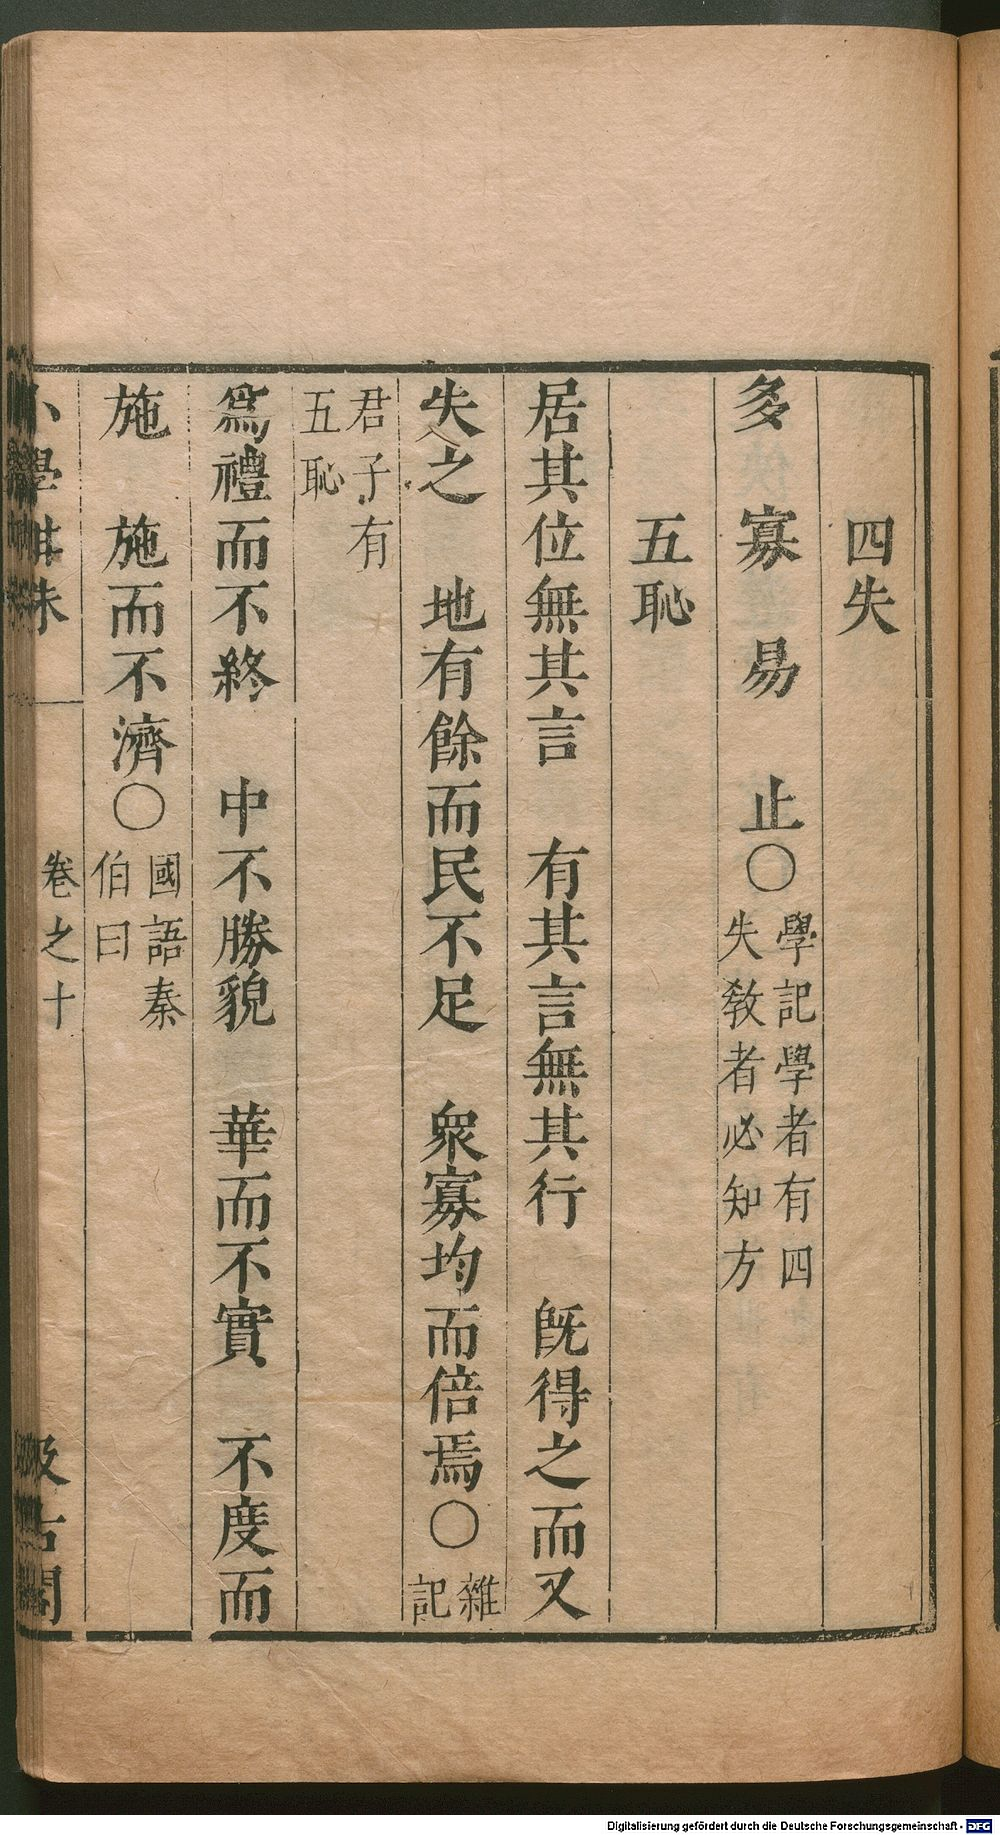 四失
多　寡　易　止〇學記學者有四
失教者必知方
五恥
居其位無其言　有其言無其行　旣得之而又
失之　地有餘而民不足　衆寡均而倍焉〇雜
記
君子有
五恥
爲禮而不終　中不勝貌　華而不實　不度而
施　施而不濟〇國語秦
伯曰
小學紺珠　卷之十　汲古閣
Digitalisierung gefördert durch die Deutsche Forschungsgemeinschaft - DFG